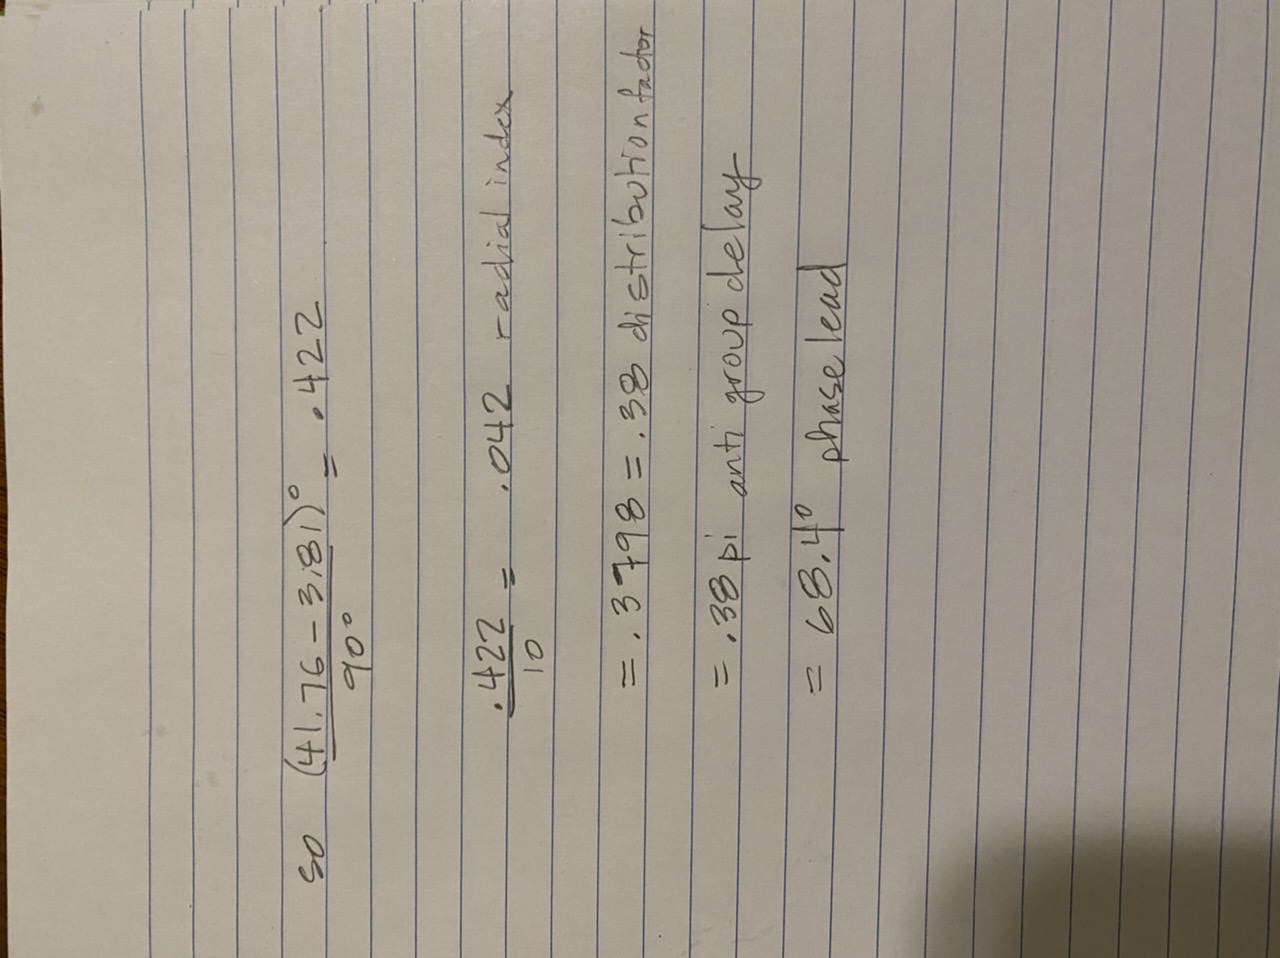 so (41.76 - 3.81)° = .422
90°
.422 = .042 radial index
10
= .3798 = .38 distribution factor
= .38 pi anti group delay
= 68.4° phase lead